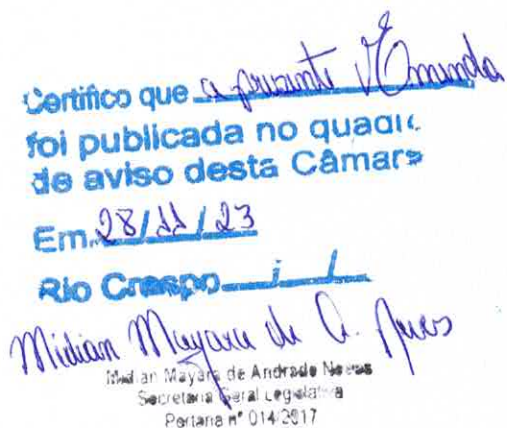 Certifico que a presente Emenda
foi publicada no quadr.
de aviso desta Câmara
Em 28/11/23
Rio Crespo / /
Midian Mayara de A. Neves
Midian Mayara de Andrade Neves
Secretaria Geral Legislativa
Portaria nº 014/2017